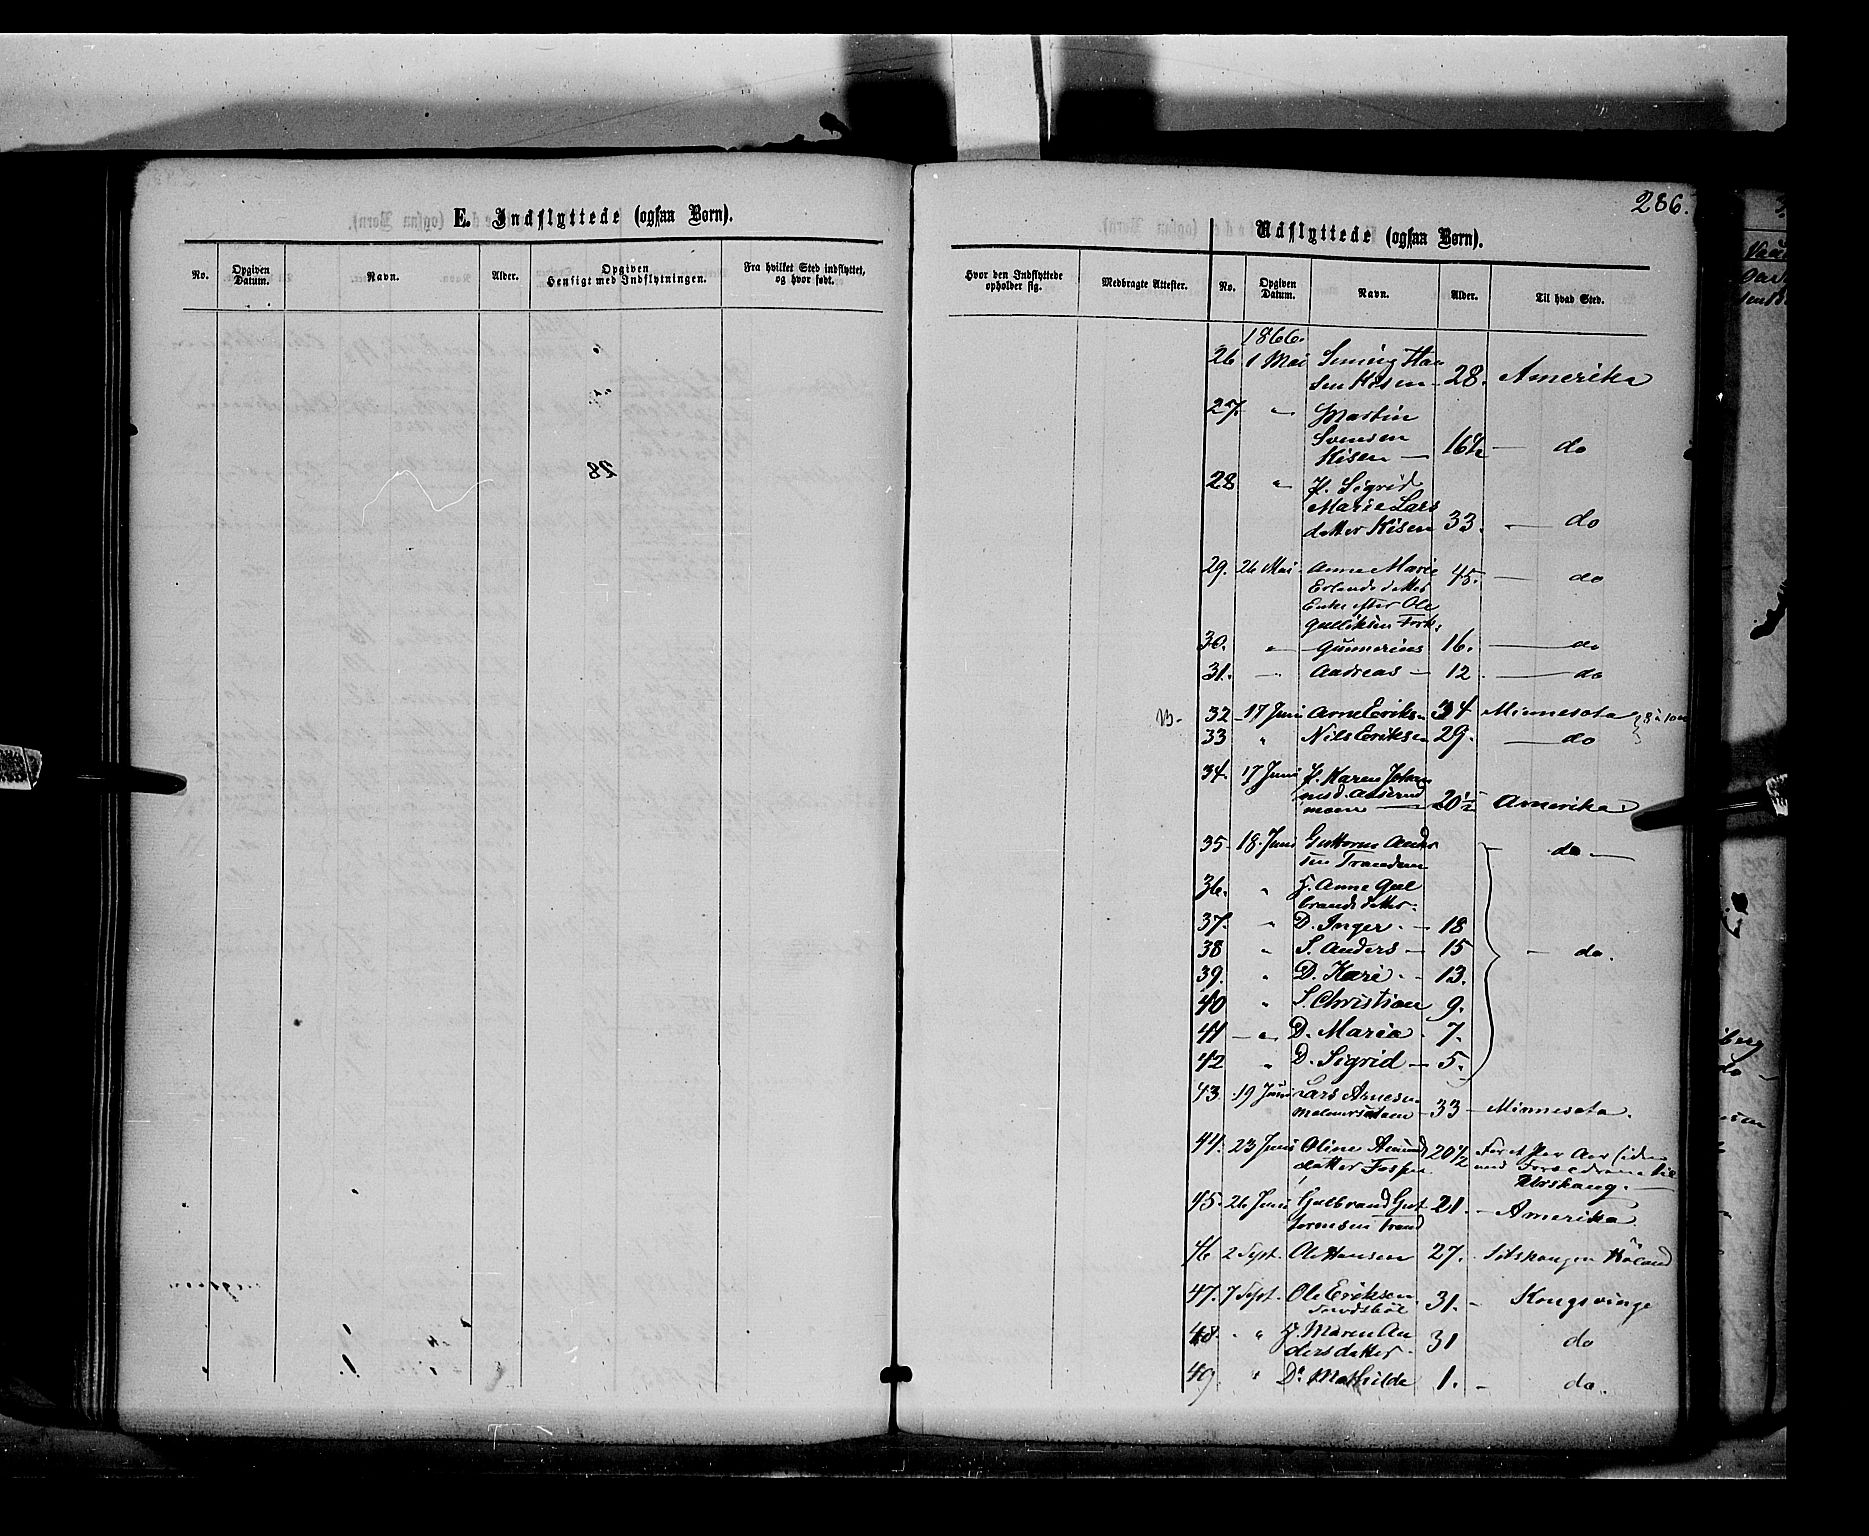 286.
E. Indflyttede (ogsaa Børn).
No. Opgiven Datum. Navn. Alder. Opgiven Hensigt med Indflytningen. Fra hvilket Sted indflyttet, og hvor født.
Udflyttede (ogsaa Børn).
Hvor den Indflyttede opholder sig. Medbragte Attester. No. Opgiven Datum. Navn. Alder. Til hvad Sted.
1866.
26 1 Mai Han
sen Kisen 28. Amerika
27. " Martin
Svensen
Kisen 16½ do
28 " P. Sigrid
Marie Lars
datter Kisen 33. do
29. 26 Mai Anne Marie 45. do
Erlandsdatter
Enke efter Ole
Gulliksen
30. " Gunnerius 16. do
31. " Andreas 12 do
32 17 Juni Arne Eriksn 34 Minnesota
33 " Nils Eriksen 29. do
34. 17 Juni P. Karen Johan
nesd.
moen 20½ Amerika
35. 18. Juni Guttorm Ander
sen Trandem do
36. " H. Anne Gul
brandsdatter.
37. " D. Inger. 18
38 " S. Anders 15 do.
39. " D. Kari 13.
40 " S. Christian 9.
41 " D. Maria 7.
42 " D. Sigrid 5.
43 19 Juni Lars Arnesen
33 Minnesota.
44. 23 Juni Oline Amund 20½ For et Par Aar siden
datter
Urskoug.
45. 26 Juni Gulbrand Gut 21. Amerika
tormsen Trand
46 2 Sept. Ole Hansen 27. Setskougen Höland
47. 7 Sept. Ole Eriksen 31. Kongsvinge
48. " H. Maren An 31 do
dersdatter.
49 " Dr Mathilde 1. do.